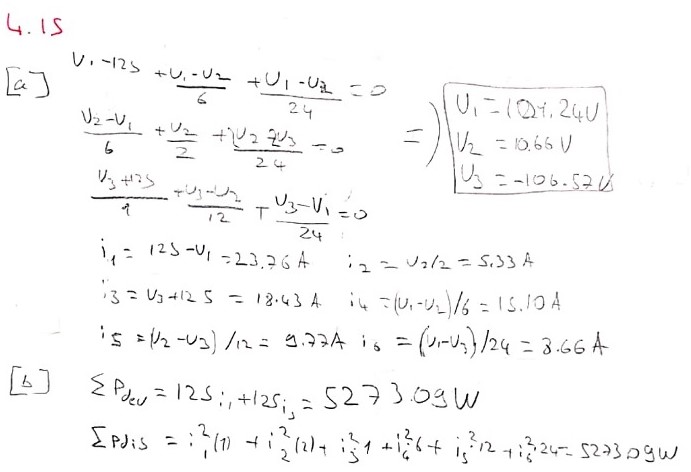 4.15
[a] V₁-125 + (V₁-V₂)/6 + (V₁-V₂)/24 = 0
(V₂-V₁)/6 + V₂/2 + (V₂-V₃)/24 = 0
(V₃+125)/1 + (V₃-V₂)/12 + (V₃-V₁)/24 = 0
=> V₁ = 101.24V
V₂ = 10.66V
V₃ = -106.57V
i₁ = 125-V₁ = 23.76 A i₂ = V₂/2 = 5.33 A
i₃ = V₃+125 = 18.43 A i₄ = (V₁-V₂)/6 = 15.10 A
i₅ = (V₂-V₃)/12 = 9.77A i₆ = (V₁-V₃)/24 = 8.66 A
[b] ΣPdev = 125i₁+125i₃ = 5273.09W
ΣPdis = i₁²(1) + i₂²(2) + i₃²1 + i₄²6 + i₅²12 + i₆²24 = 5273.09W